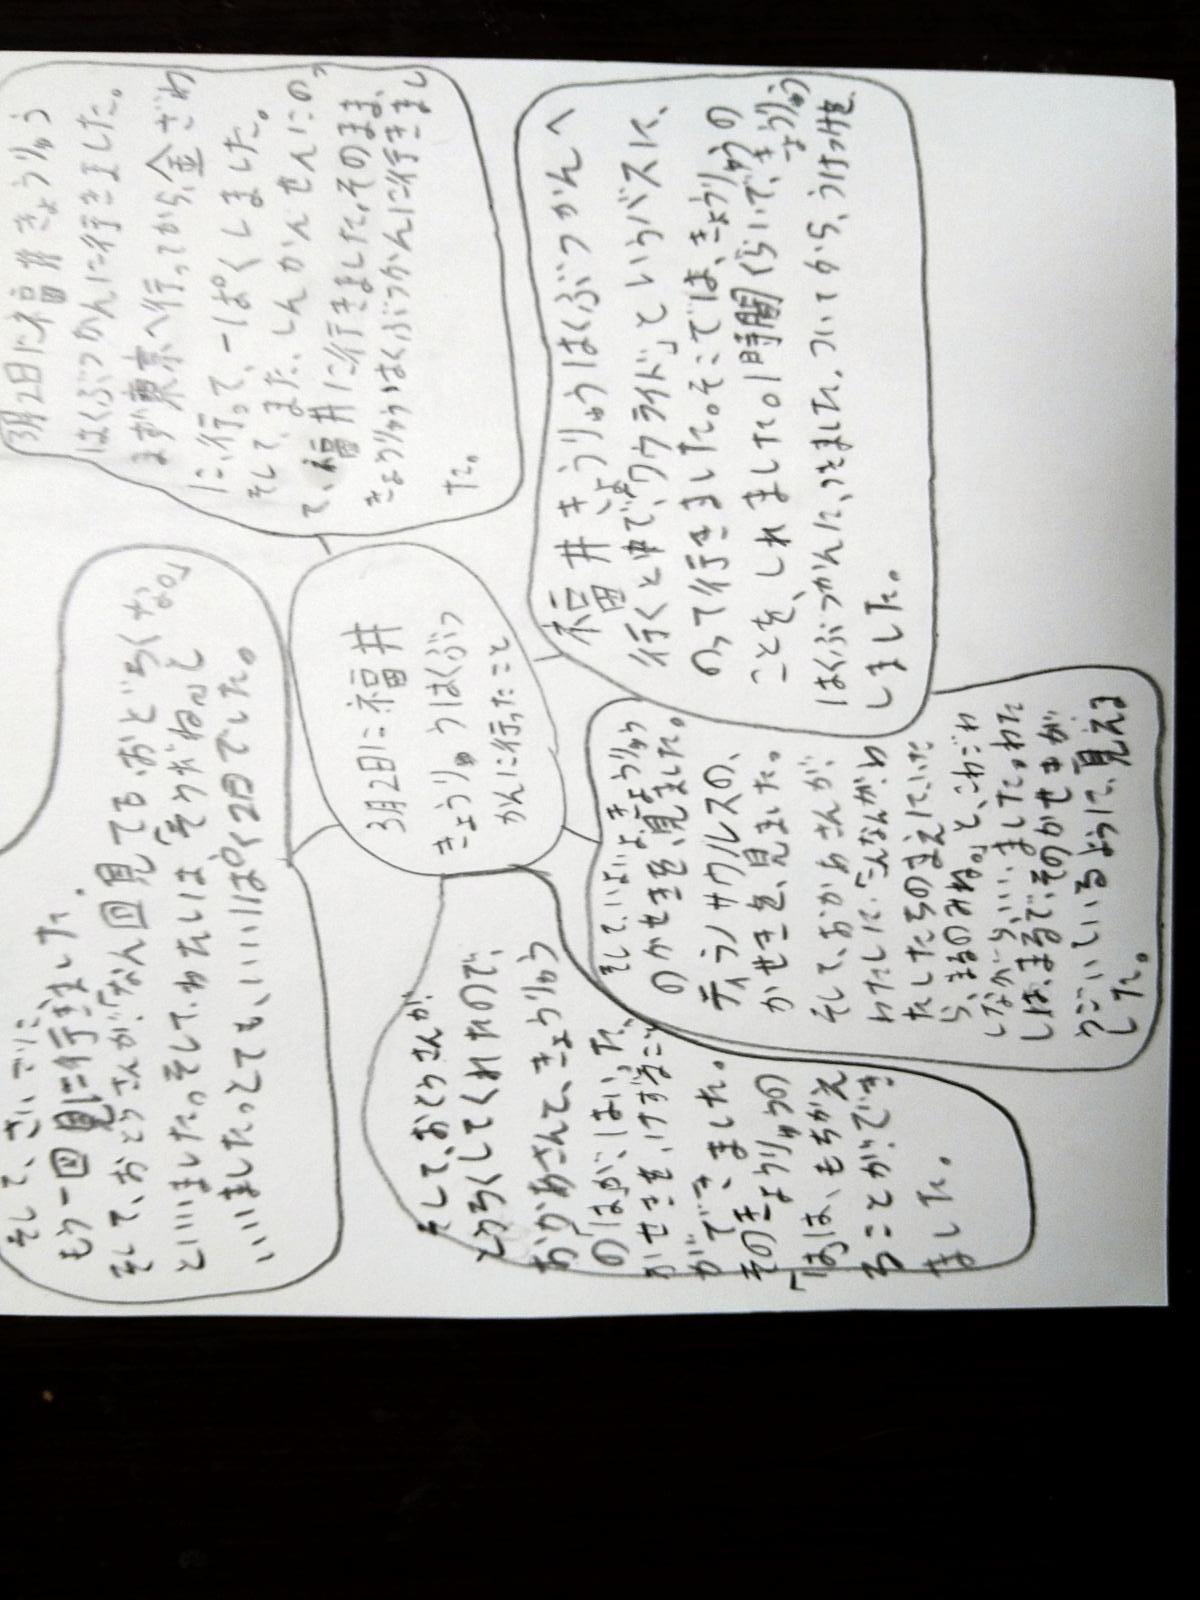 3月2日に福井
きょうりゅうはくぶつ
かんに行ったこと
3月2日に福井きょうりゅう
はくぶつかんに行きました。
まず東京へ行ってから、金ざわ
に、行って、一ぱくしました。
そして、また、しんかんせんにのっ
て、福井に行きました。そのまま、
きょうりゅうはくぶつかんに行きまし
た。
福井きょうりゅうはくぶつかんへ
行くと中で、「ワウライド」というバスに、
のって行きました。そこでは、きょうりゅうの
ことを、しれました。1時間くらいで、きょうりゅう
はくぶつかんに、つきました。ついてから、うけつけを
しました。
そして、いよいよ、きょうりゅう
のかせきを、見ました。
ティラノサウルスの、
かせきを、見ました。
そして、おかあさんが、
わたしに、「こんなんが、わ
たしたちのまえにいた
ら、まるのみね。」と、こわごわ
しながら、いいました。わた
しは、まるで、そのかせきが
うごいているように、見えま
した。
そして、おとうさんが、
とうろくしてくれたので、
おかあさんて、きょうりゅう
のはが、はいった、
かせきを、けずること
ができました。
そのきょうりゅうの
「は」は、もちかえ
ることが、でき
ました。
そして、さいごに、
もう一回見に行きました。
そして、おとうさんが、「なん回見てもおどろくなあ。」
といいました。そして、わたしは「そうだね。」と
いいました。とても、いいいっぱく2日でした。